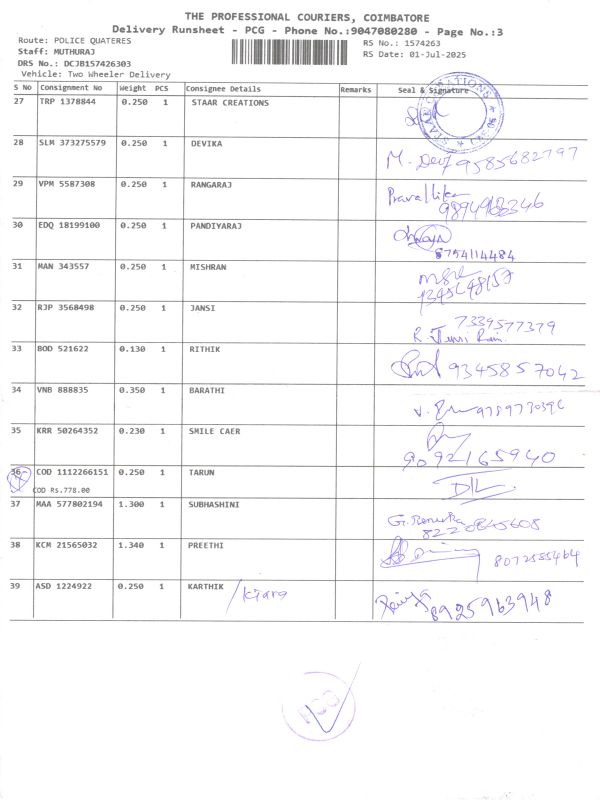 THE PROFESSIONAL COURIERS, COIMBATORE
Delivery Runsheet - PCG - Phone No.:9047080280 - Page No.:3
Route: POLICE QUATERES
RS No.: 1574263
Staff: MUTHURAJ
RS Date: 01-Jul-2025
DRS No.: DCJB157426303
Vehicle: Two Wheeler Delivery
S No Consignment No Weight PCS Consignee Details Remarks Seal & Signature
27 TRP 1378844 0.250 1 STAAR CREATIONS
28 SLM 373275579 0.250 1 DEVIKA
M. Devi 9585682797
29 VPM 5587308 0.250 1 RANGARAJ
30 EDQ 18199100 0.250 1 PANDIYARAJ
8754114484
31 MAN 343557 0.250 1 MISHRAN
32 RJP 3568498 0.250 1 JANSI
7339577379
33 BOD 521622 0.130 1 RITHIK
9345857042
34 VNB 888835 0.350 1 BARATHI
35 KRR 50264352 0.230 1 SMILE CAER
9092165940
36 COD 1112266151 0.250 1 TARUN
COD Rs.778.00
37 MAA 577802194 1.300 1 SUBHASHINI
G. Renuka
8220845608
38 KCM 21565032 1.340 1 PREETHI
8072555464
39 ASD 1224922 0.250 1 KARTHIK /Kiara
8925963948
PCG